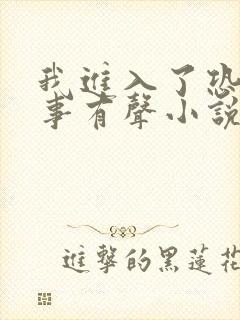 我進入了恐
事有聲小說
進擊的黑蓮花